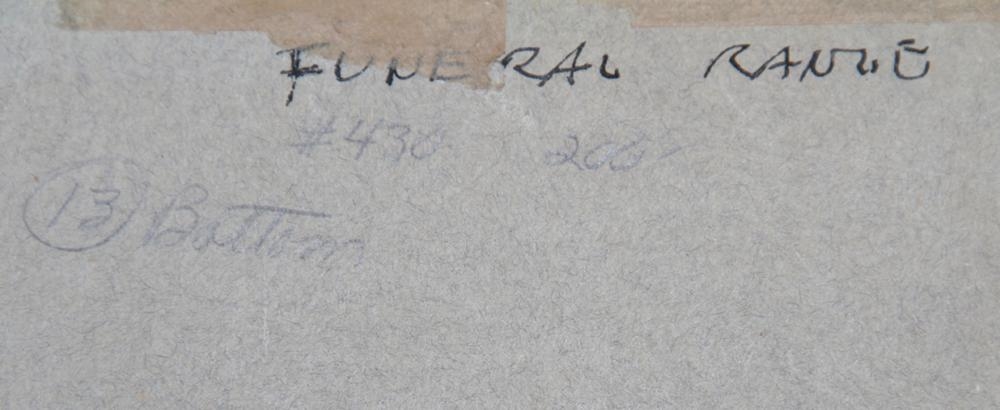 FUNERAL RANGE
#430 200
13 Bottom